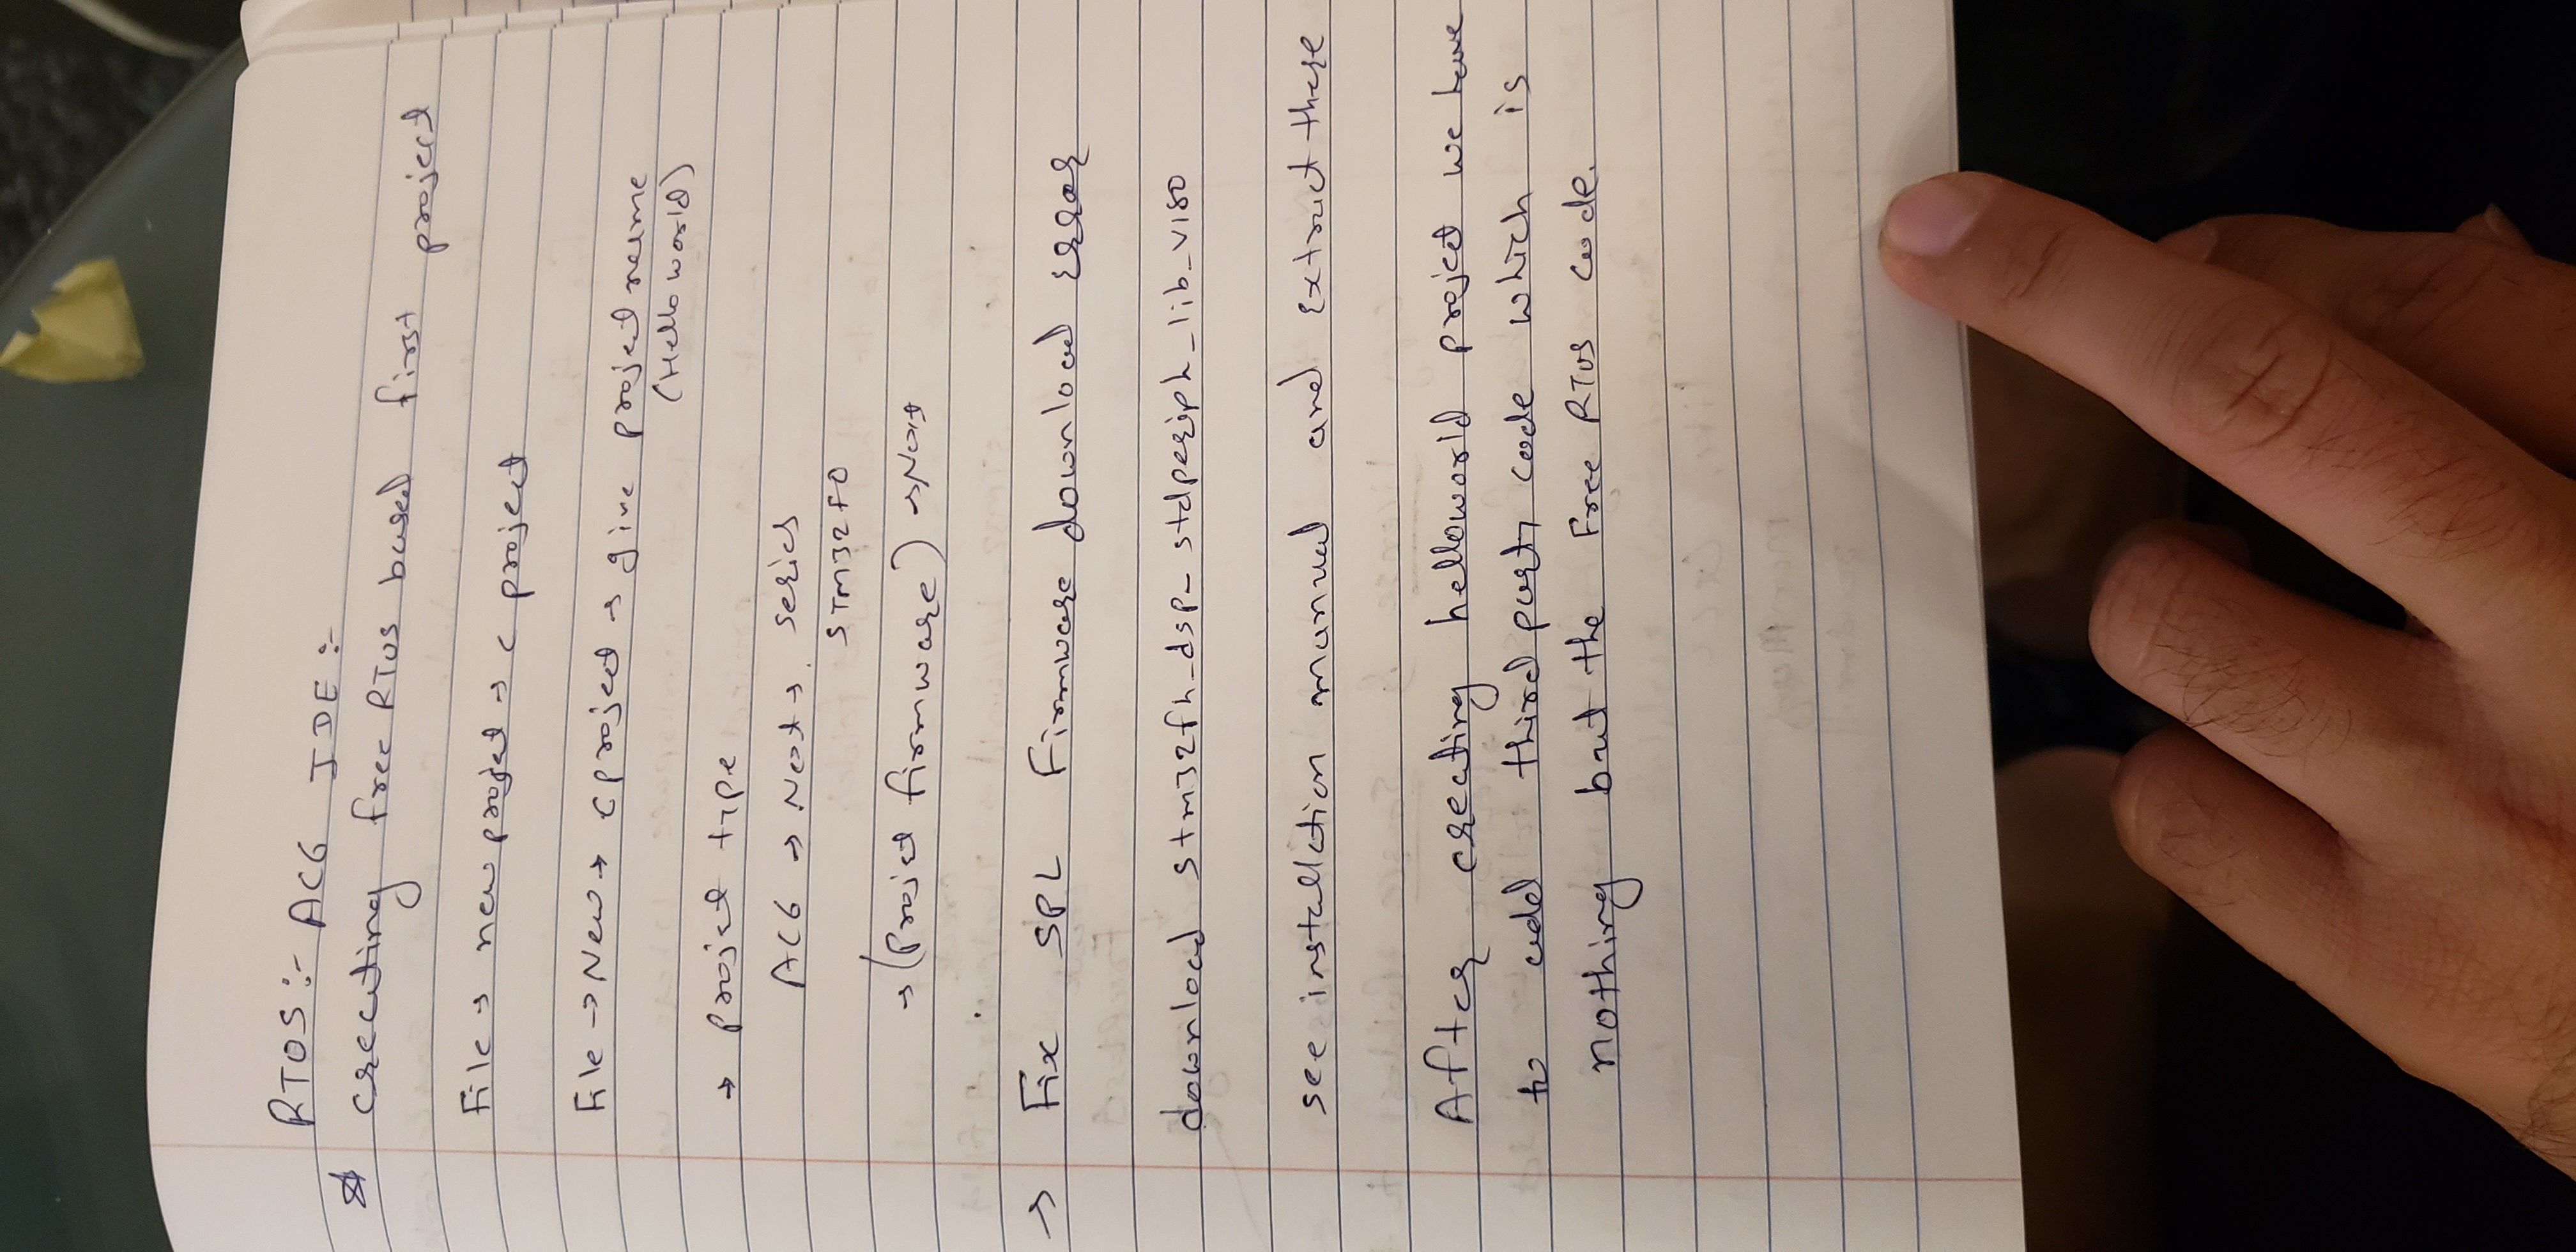 RTOS :- AC6 IDE :-
creating free RTOS based first project
File → new projet → c project
File → New → c project → give project name
(Hello world)
→ projet type
AC6 → Next → series
STM32F0
→ (Projet firmware) → Next
→ Fix SPL Firmware download error
download stm32fh_dsp_stdperiph_lib_v180
see installation manual and extract there
After creating helloworld project we have
to add third party code which is
nothing but the Free RTOS code.